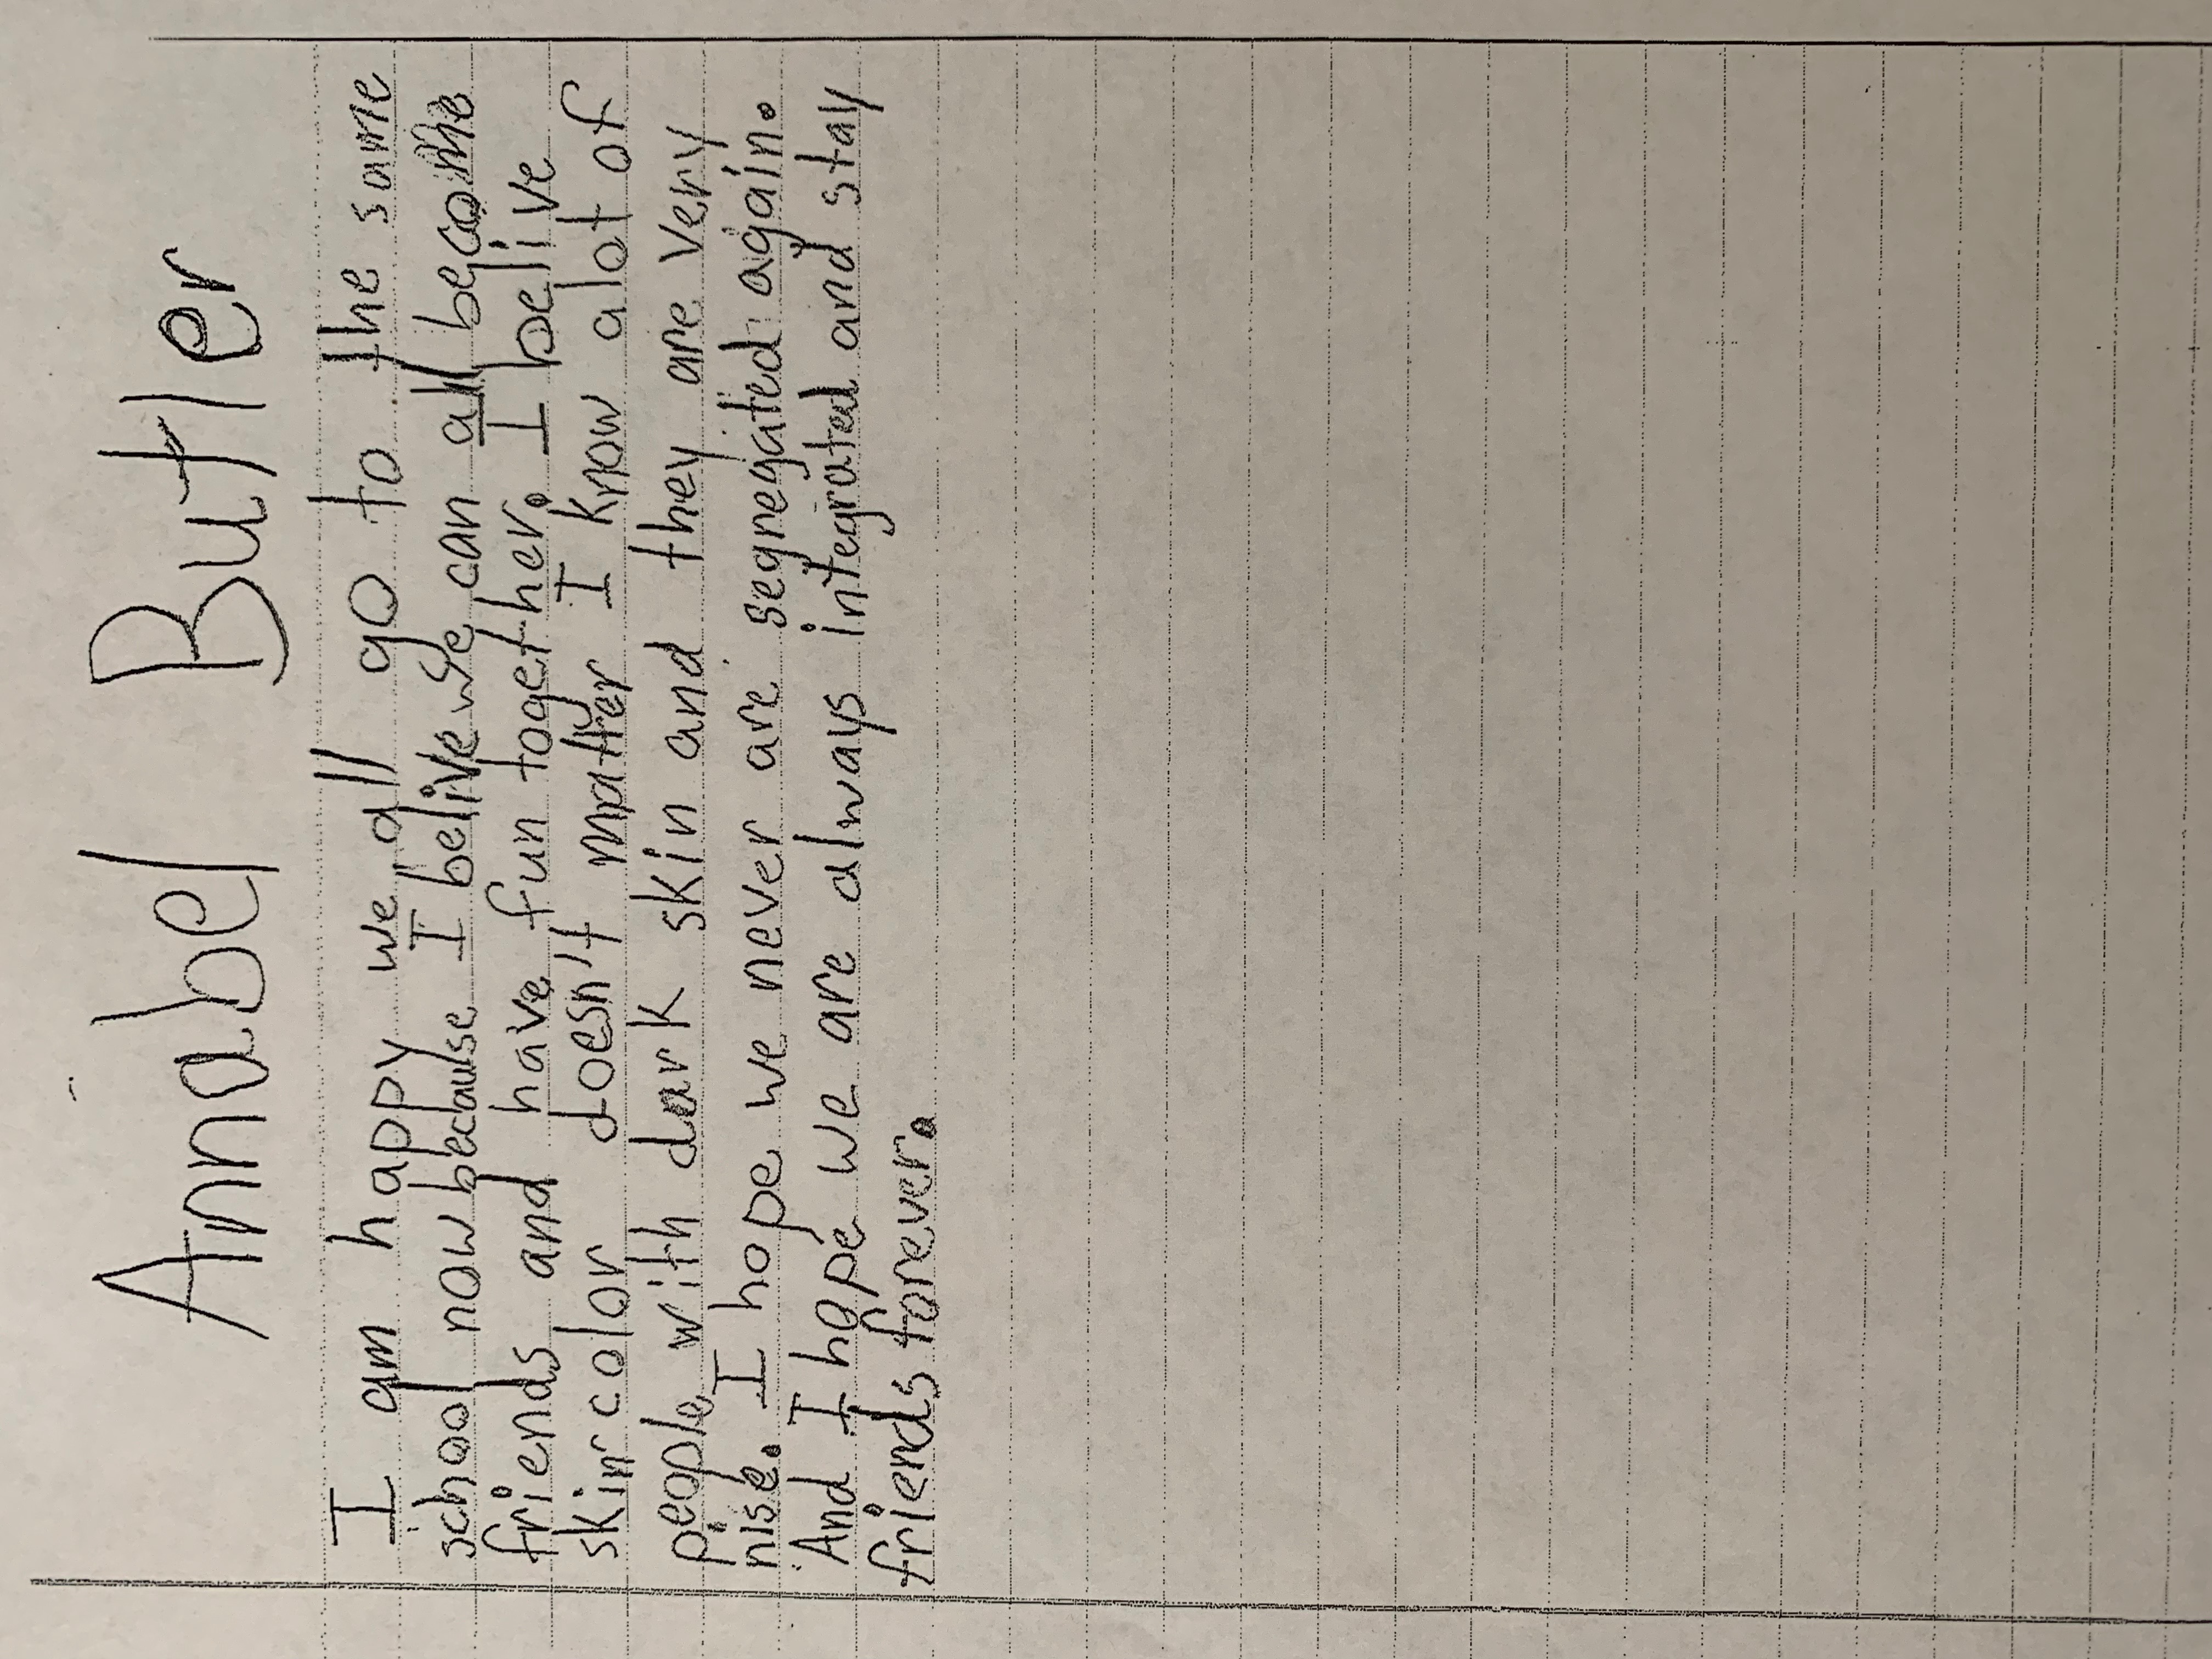 Annabel Butler
I am happy we all go to the same
school now because I belive we can all become
friends and have fun together. I belive
skin color doesn't matter I know alot of
people with dark skin and they are very
nise. I hope we never are segregated again.
And I hope we are always integrated and stay
friends forever.